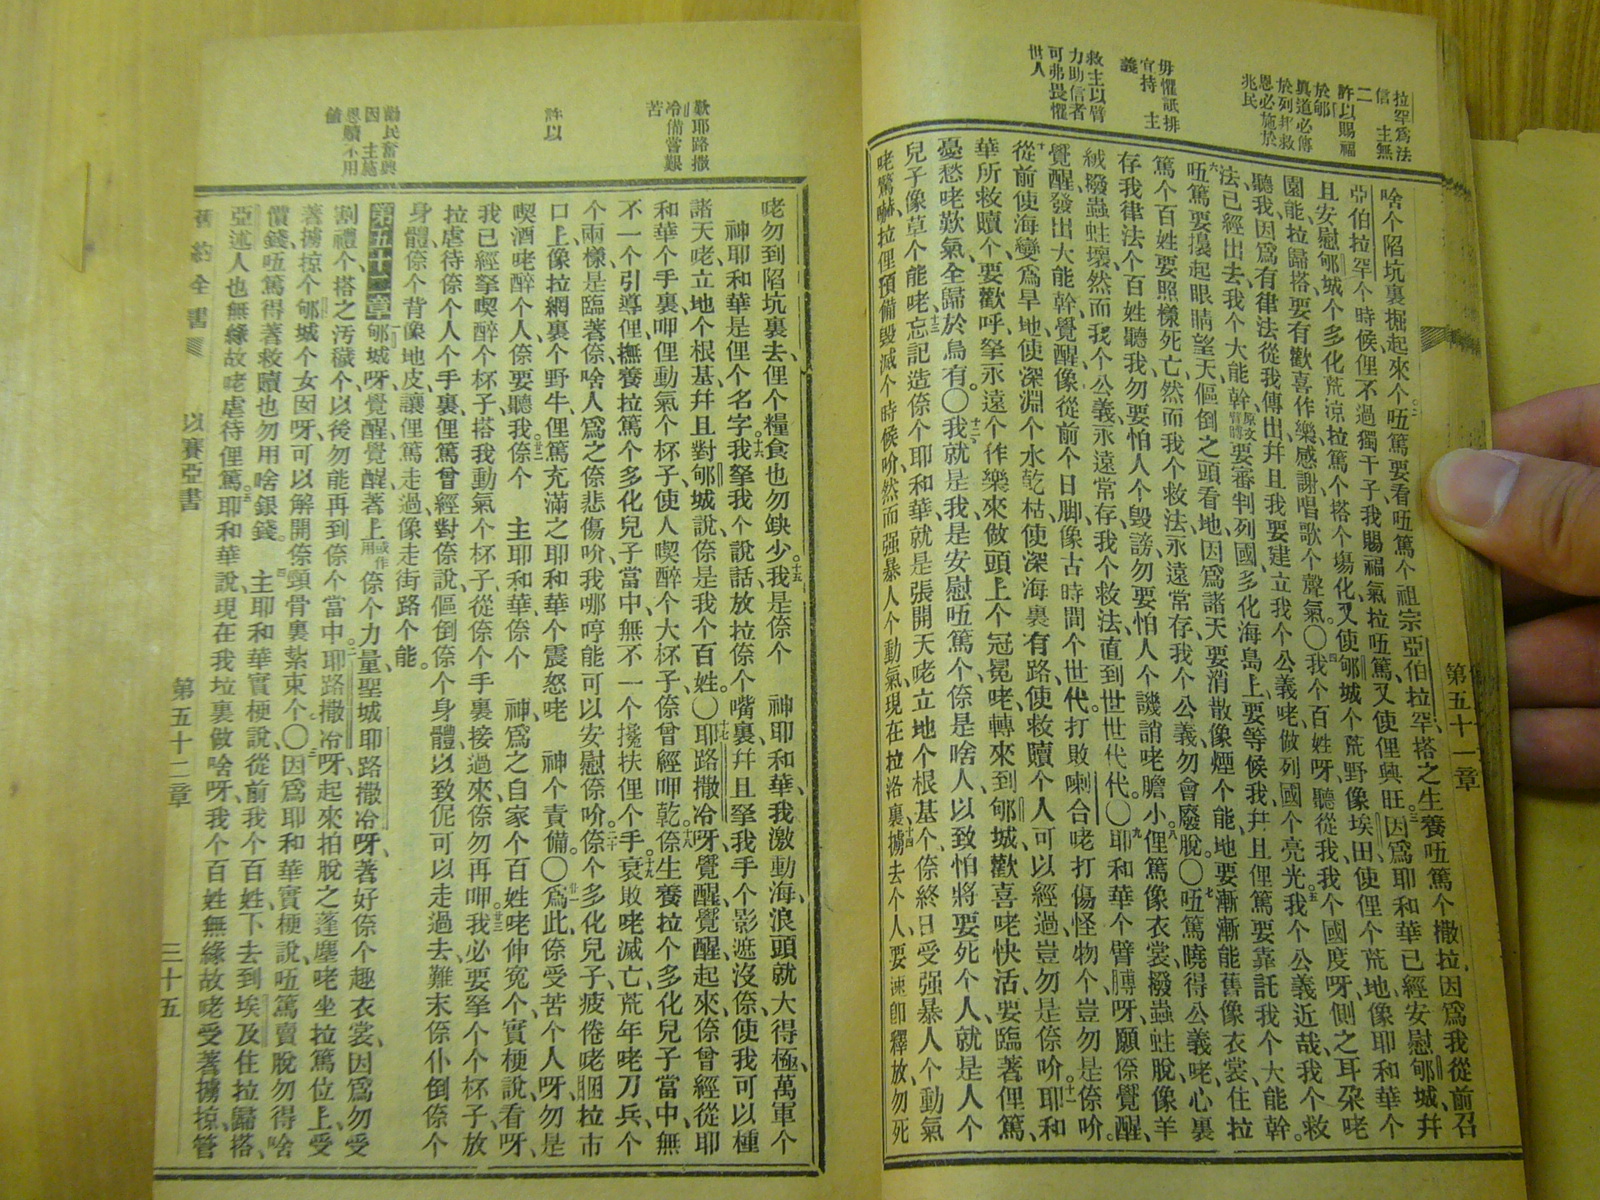 拉罕爲法
信 主無
二
許以賜福
於郇
眞道必傳
於列邦救
恩必施於
兆民
毋懼詆排
宜持 主
義
救主以臂
力助信者
可弗畏懼
世人
第五十一章
啥个陷坑裏掘起來个二吘篤要看吘篤个祖宗亞伯拉罕、搭之生養吘篤个撒拉、因爲我從前召
亞伯拉罕个時候、俚不過獨干子、我賜福氣拉吘篤、又使俚興旺。三因爲耶和華已經安慰郇城、幷
且安慰郇城个多化荒涼、拉篤个搭个塲化、又使郇城个荒野像埃田、使俚个荒地像耶和華个
園、能拉歸搭要有歡喜作樂感謝唱歌个聲氣。〇四我个百姓呀、聽從我、我个國度呀、側之耳朶咾
聽我、因爲有律法從我傳出、幷且我要建立我个公義咾、做列國个亮光。五我个公義近哉、我个救
法已經出去、我个大能幹原文臂膊要審判列國、多化海島上要等候我、幷且俚篤要靠託我个大能幹。
六吘篤要擡起眼睛望天、傴倒之頭看地、因爲諸天要消散像煙个能、地要漸漸能舊像衣裳、住拉
篤个百姓要照樣死亡、然而我个救法永遠常存、我个公義勿會廢脫。〇七吘篤曉得公義咾、心裏
存我律法个百姓聽我、勿要怕人个毀謗、勿要怕人个譏誚咾膽小。八俚篤像衣裳、撥蟲蛀脫、像羊
絨撥蟲蛀壞、然而我个公義永遠常存、我个救法直到世世代代。〇九耶和華个臂膊呀、願倷覺醒、
覺醒、發出大能幹、覺醒、像從前个日脚、像古時間个世代。打敗喇合咾打傷怪物个、豈勿是倷吤。
十從前使海變爲旱地、使深淵个水乾枯、使深海裏有路、使救贖个人可以經過、豈勿是倷吤。十一耶和
華所救贖个、要歡呼、拏永遠个作樂來做頭上个冠冕咾、轉來到郇城、歡喜咾快活、要臨著俚篤、
憂愁咾歎氣、全歸於烏有。〇十二我就是我、是安慰吘篤个、倷是啥人、以致怕將要死个人、就是人个
兒子像草个能咾、十三忘記造倷个耶和華、就是張開天咾立地个根基个、倷終日受强暴人个動氣
咾驚嚇、拉俚預備毀滅个時候吤、然而强暴人个動氣、現在拉洛裏、十四擄去个人要速卽釋放、勿死
歎耶路撒
冷備嘗艱
苦
勸民奮興
因 主施
恩贖不用
咾勿到陷坑裏去、俚个糧食也勿缺少。十五我是倷个 神耶和華、我激動海、浪頭就大得極、萬軍个
神耶和華是俚个名字。十六我拏我个說話、放拉倷个嘴裏、幷且拏我手个影遮沒倷、使我可以種
諸天咾立地个根基、幷且對郇城說、倷是我个百姓。〇十七耶路撒冷呀、覺醒、覺醒、起來、倷曾經從耶
和華个手裏、呷俚動氣个杯子、使人喫醉个大杯子、倷曾經呷乾。十八倷生養拉个多化兒子當中、無
不一个引導俚、撫養拉篤个多化兒子當中、無不一个攙扶俚个手。十九衰敗咾滅亡、荒年咾刀兵、个
个兩樣、是臨著倷、啥人爲之倷悲傷吤、我哪哼能可以安慰倷吤。二十倷个多化兒子、疲倦咾睏拉市
口上、像拉網裏个野牛、俚篤充滿之耶和華个震怒咾 神个責備。〇廿一爲此、倷受苦个人呀、勿是
喫酒咾醉个人、倷要聽我。廿二倷个 主耶和華、倷个 神、爲之自家个百姓咾伸寃个、實梗說、看呀、
我已經拏喫醉个杯子、搭我動氣个杯子、從倷个手裏接過來、倷勿再呷。廿三我必要拏个个杯子、放
拉虐待倷个人个手裏、俚篤曾經對倷說、傴倒、倷个身體、以致伲可以走過去、難末倷仆倒倷个
身體、倷个背像地皮、讓俚篤走過、像走街路个能。
第五十二章一郇城呀、覺醒、覺醒、著上或作用倷个力量、聖城耶路撒冷呀、著好倷个趣衣裳、因爲勿受
割禮个、搭之汚穢个、以後勿能再到倷个當中。二耶路撒冷呀、起來拍脫之蓬塵咾坐拉篤位上、受
著擄掠个郇城个女囡呀、可以解開倷頸骨裏紮束个。〇三因爲耶和華實梗說、吘篤賣脫勿得啥
價錢、吘篤得著救贖、也勿用啥銀錢。四 主耶和華實梗說、從前我个百姓下去到埃及、住拉歸搭、
亞述人也無緣故咾虐待俚篤。五耶和華說、現在我垃裏做啥呀、我个百姓無緣故咾受著擄掠、管
舊約全書 以賽亞書 第五十二章 三十五